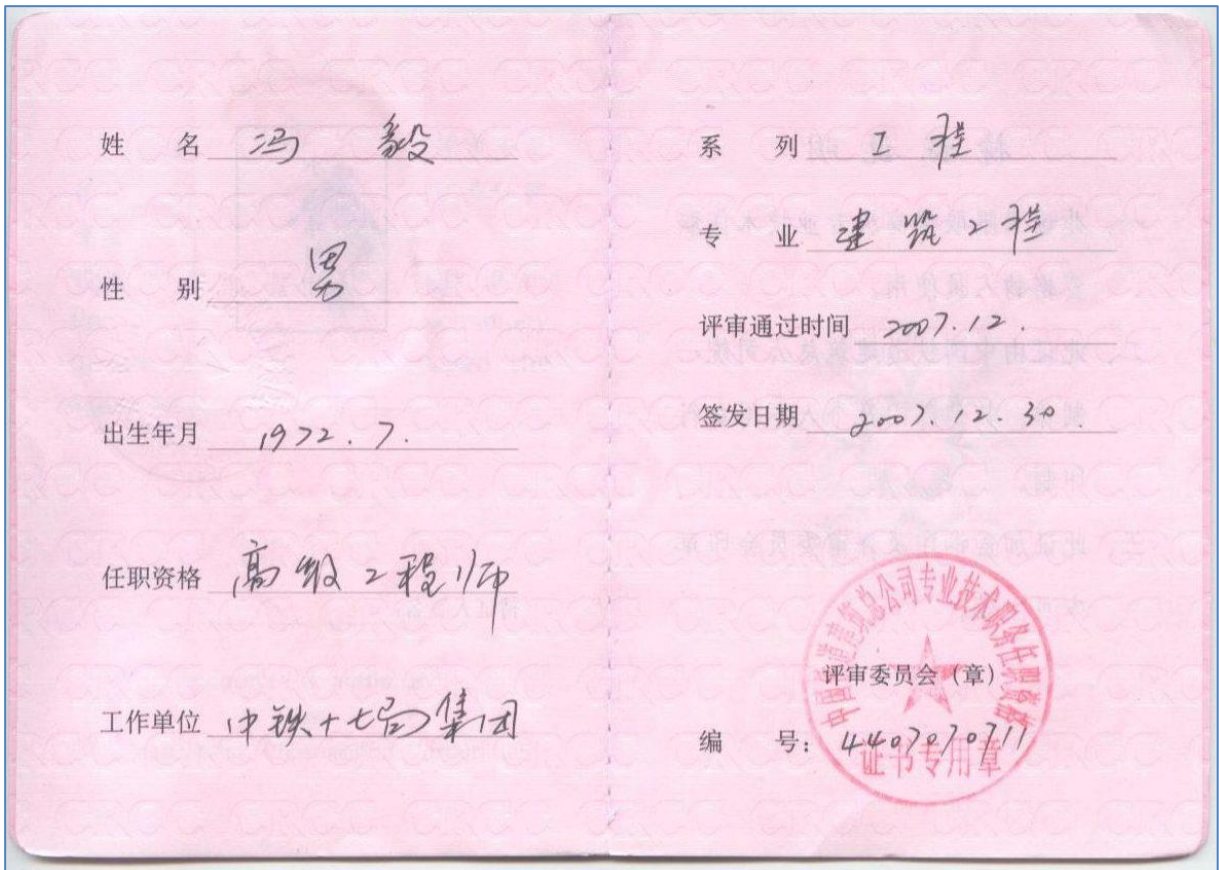 姓 名 冯 毅
性 别 男
出生年月 1972.7.
任职资格 高级工程师
工作单位 中铁十七局集团
系 列 工程
专 业 建筑工程
评审通过时间 2007.12.
签发日期 2007.12.30
中国铁道建筑总公司专业技术职务任职资格
评审委员会（章）
编 号：4407070711
证书专用章